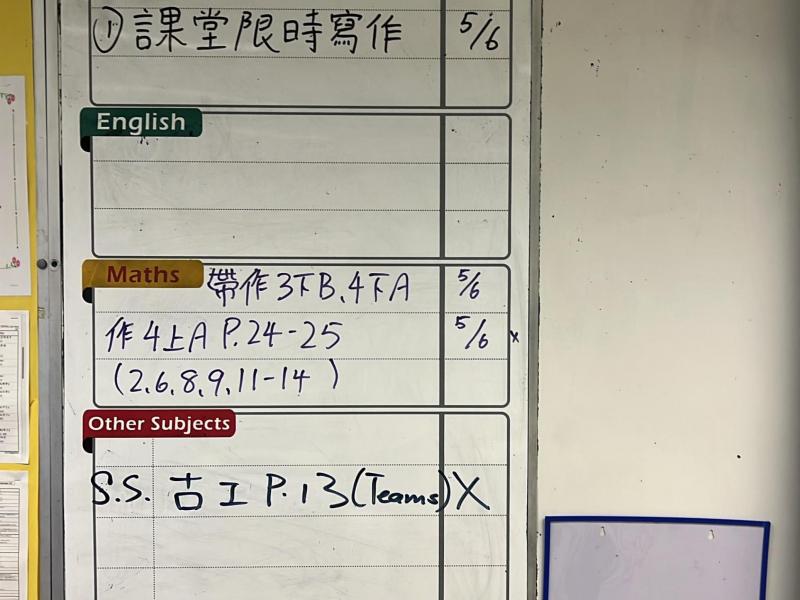 ① 課堂限時寫作 5/6
English
Maths 帶作3下B、4下A 5/6
作4上A P.24-25 5/6 x
(2,6,8,9,11-14)
Other Subjects
S.S. 古工 P.13(Teams) X